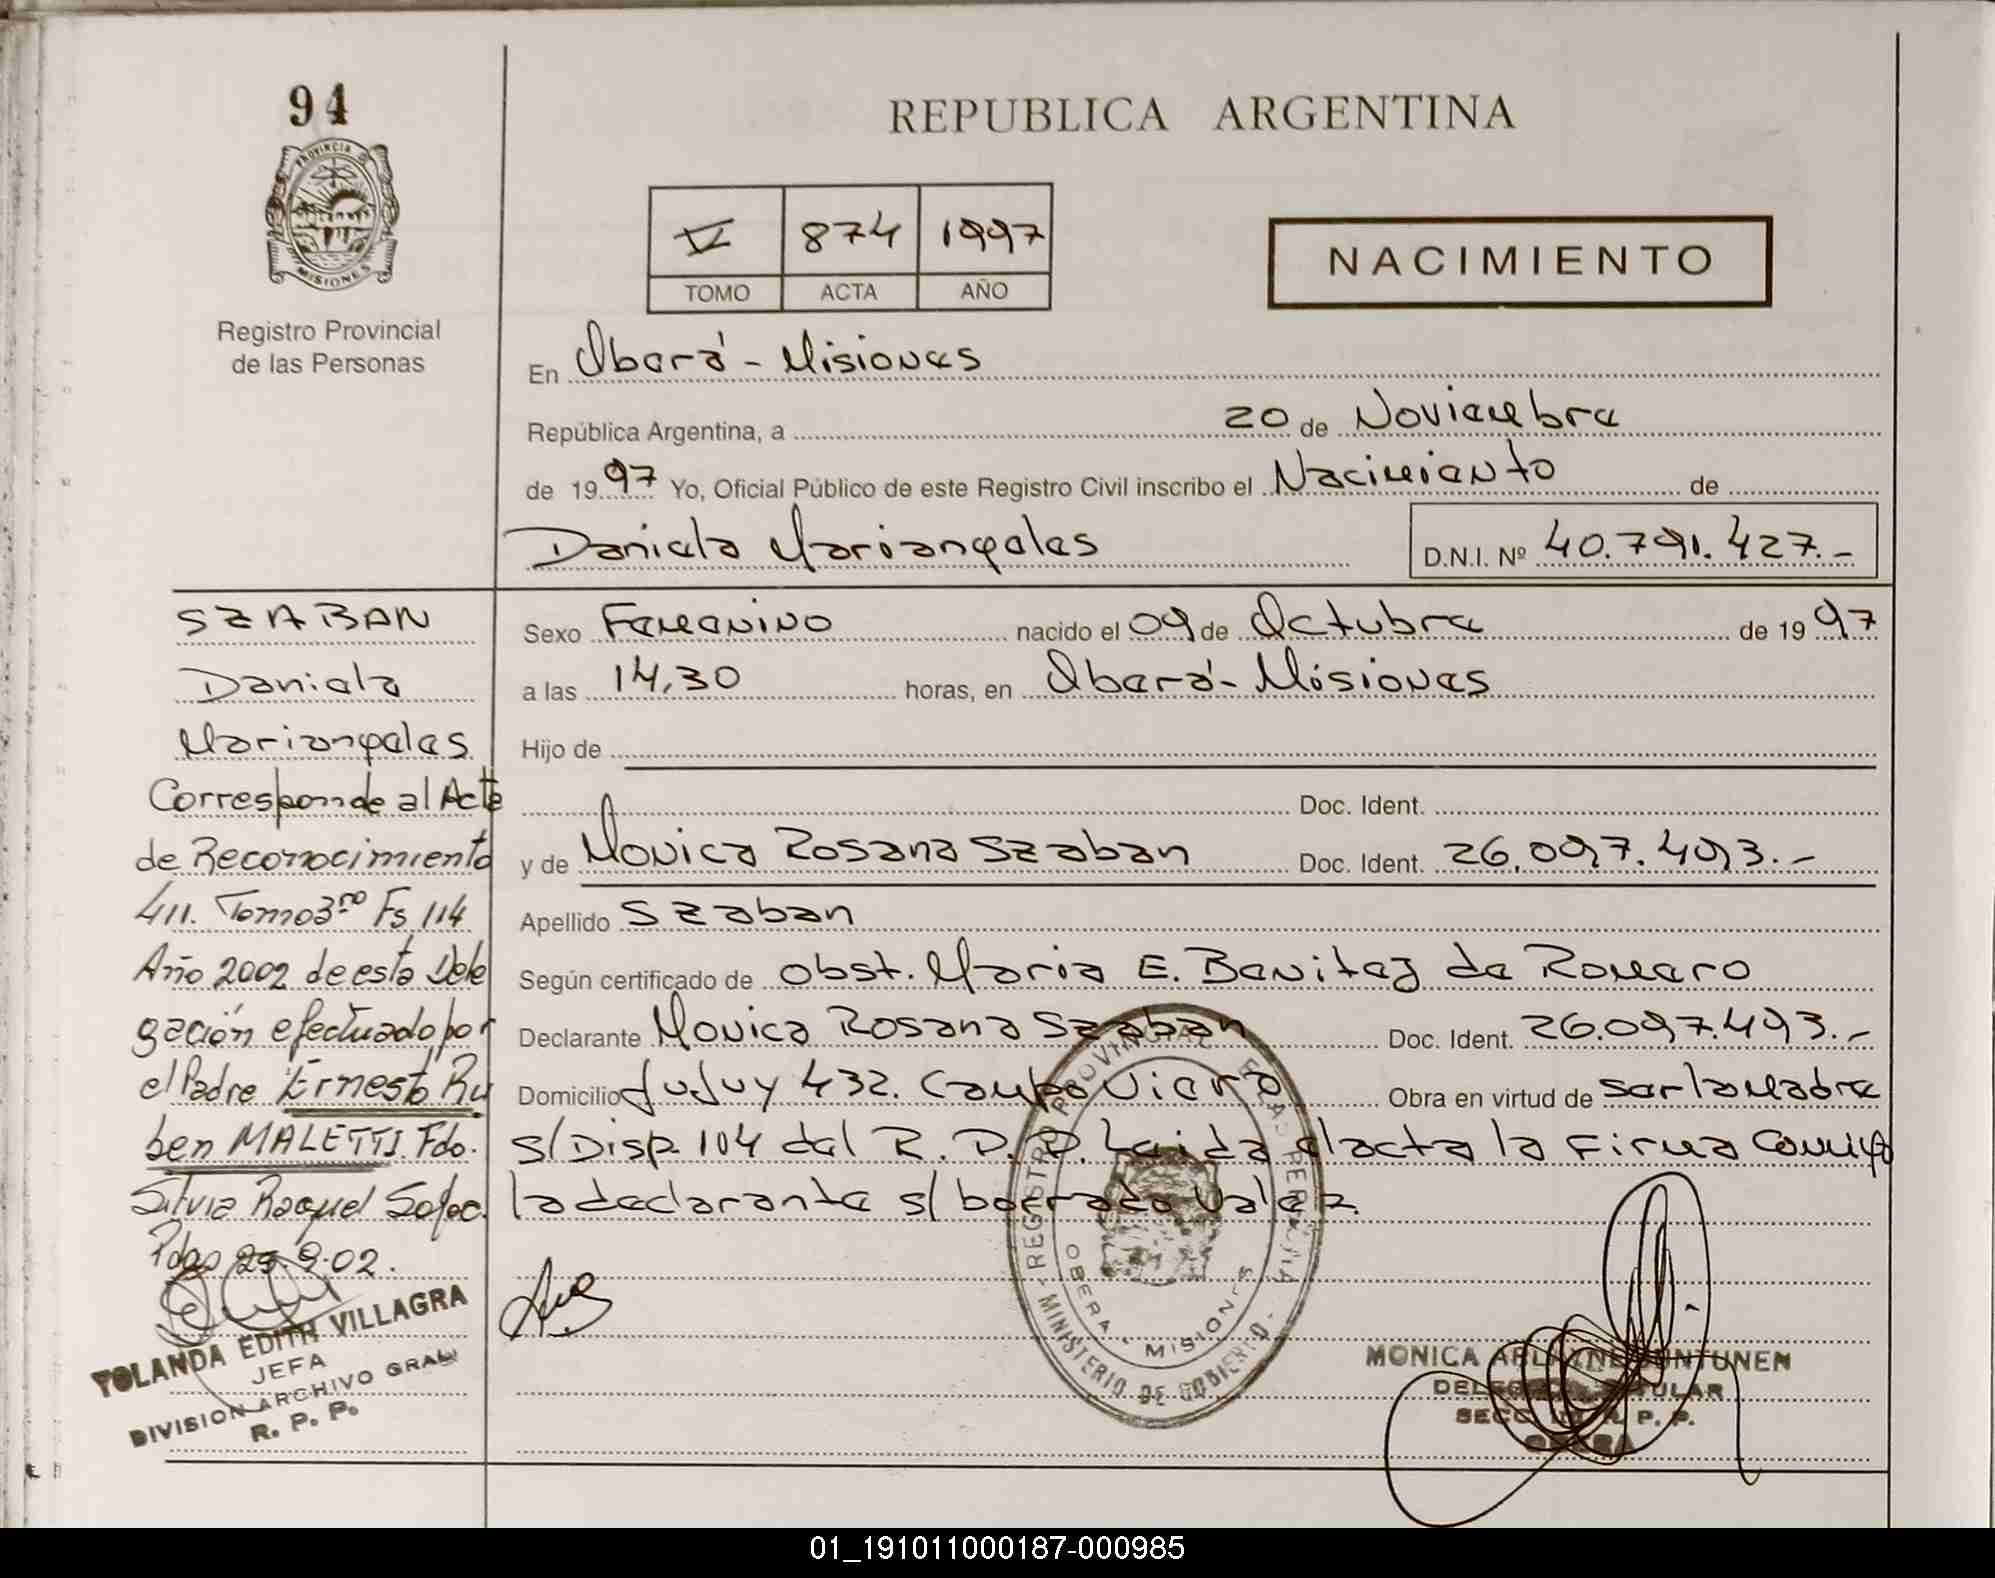 94
PROVINCIA DE
MISIONES
Registro Provincial
de las Personas
REPUBLICA ARGENTINA
V 874 1997
TOMO ACTA AÑO
NACIMIENTO
En Oberá - Misiones
República Argentina, a 20 de Noviembre
de 1997 Yo, Oficial Público de este Registro Civil inscribo el Nacimiento de
Daniela Mariangeles D.N.I. Nº 40.791.427.-
SZABAN
Daniela
Mariangeles
Corresponde al Acta
de Reconocimiento
411. Tomo 3ro Fs 114
Año 2002 de esta Dele
gación efectuado por
el Padre Ernesto Ru
ben MALETTI. Fdo.
Silvia Raquel
Pdas 25.9.02.
YOLANDA EDITH VILLAGRA
JEFA
DIVISION ARCHIVO GRAL
R. P. P.
Sexo Femenino nacido el 09 de Octubre de 1997
a las 14,30 horas, en Oberá - Misiones
Hijo de
Doc. Ident.
y de Monica Rosana Szaban Doc. Ident. 26.097.493.-
Apellido Szaban
Según certificado de obst. Maria E. Benitez de Romero
Declarante Monica Rosana Szaban Doc. Ident. 26.097.493.-
Domicilio Jujuy 432. Campo Viera Obra en virtud de ser la madre
s/Disp. 104 del R. P. P. Leida el acta la Firma Conmigo
la declarante s/ borrado Vale
REGISTRO PROVINCIAL DE LAS PERSONAS
OBERA - MISIONES
MINISTERIO DE GOBIERNO
MONICA
TITULAR
SECC. R. P. P.
OBERA
01_191011000187-000985